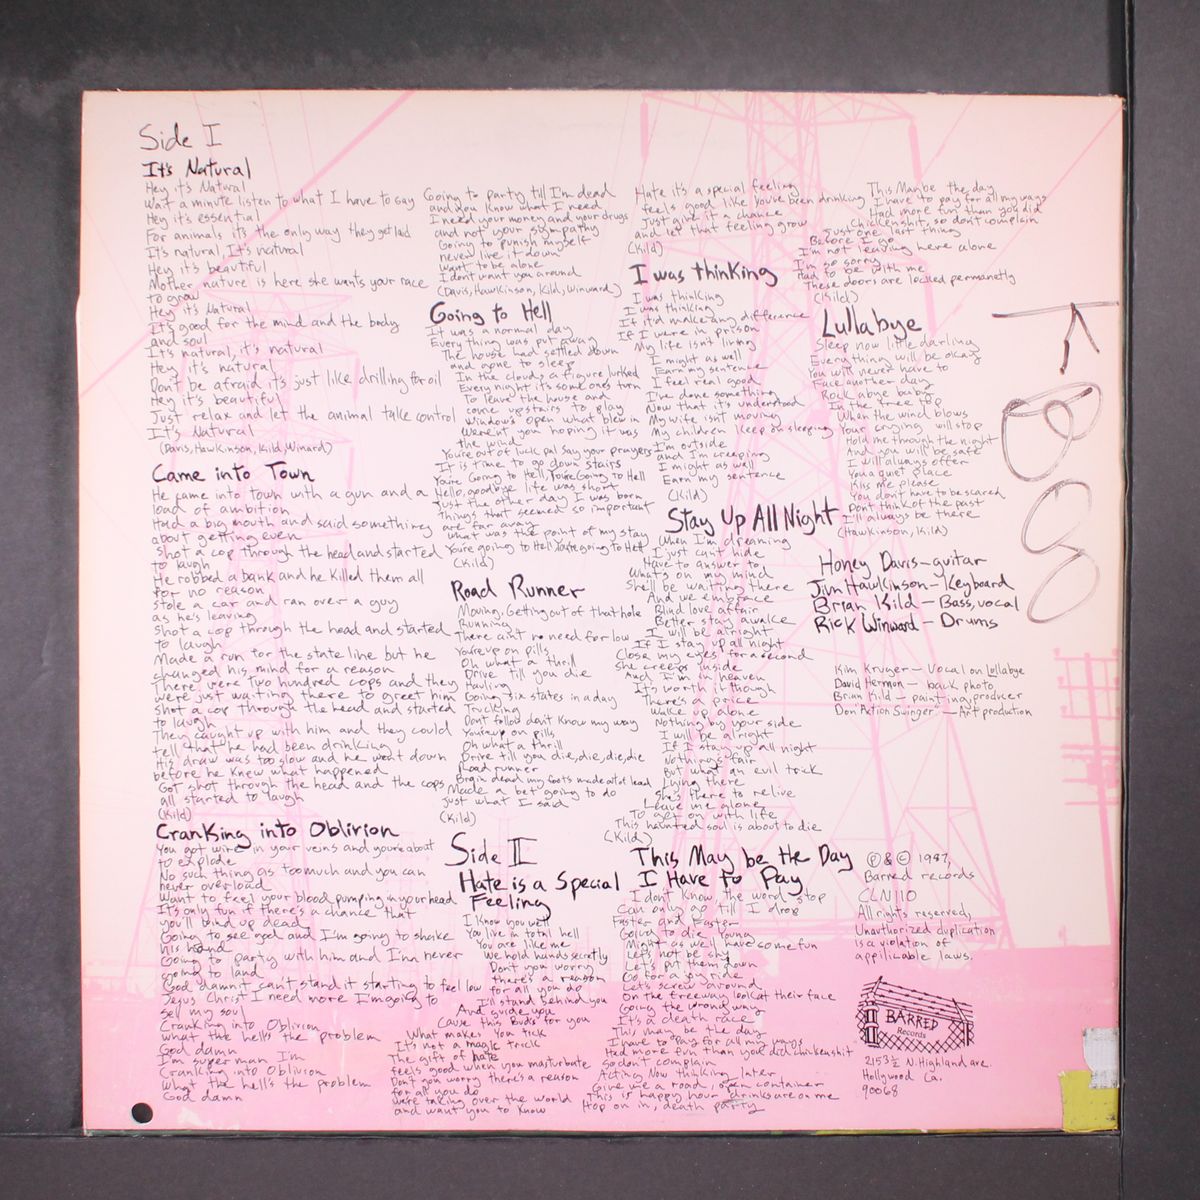 Side I
It's Natural
Hey it's Natural
Wait a minute listen to what I have to say
Hey it's essential
For animals it's the only way they get laid
It's natural, It's natural
Hey it's beautiful
Mother nature is here she wants your race
to grow
Hey it's Natural
It's good for the mind and the body
and soul
It's natural, it's natural
Hey it's natural
Don't be afraid it's just like drilling for oil
Hey it's beautiful
Just relax and let the animal take control
It's Natural
(Davis, Hawkinson, Kild, Winard)
Came into Town
He came into town with a gun and a
load of ambition
Had a big mouth and said something
about getting even
Shot a cop through the head and started
to laugh
He robbed a bank and he killed them all
for no reason
stole a car and ran over a guy
as he's leaving
Shot a cop through the head and started
to laugh
Made a run for the state line but he
changed his mind for a reason
There were two hundred cops and they
were just waiting there to greet him
Shot a cop through the head and started
to laugh
They caught up with him and they could
tell that he had been drinking
His draw was too slow and he went down
before he knew what happened
Got shot through the head and the cops
all started to laugh
(Kild)
Cranking into Oblivion
You got wire in your veins and you're about
to explode
No such thing as too much and you can
never overload
Want to feel your blood pumping in your head
It's only fun if there's a chance that
you'll wind up dead
Going to see god and I'm going to shake
his hand
Going to party with him and I'm never
going to land
God damnit can't stand it starting to feel low
Jesus Christ I need more I'm going to
sell my soul
Cranking into Oblivion
What the hell's the problem
God damn
I'm super man I'm
Cranking into Oblivion
What the hell's the problem
God damn
Going to party till I'm dead
and you know what I need
I need your money and your drugs
and not your sympathy
Going to punish myself
never live it down
Want to be alone
I don't want you around
(Davis, Hawkinson, Kild, Winward)
Going to Hell
It was a normal day
Everything was put away
The house had settled down
and gone to sleep
In the clouds a figure lurked
Every night it's some ones turn
To leave the house and
come upstairs to play
Windows open what blew in
Weren't you hoping it was
the wind
You're out of luck pal say your prayers
It is time to go down stairs
You're Going to Hell, You're Going to Hell
Hello, goodbye life was short
Just the other day I was born
Things that seemed so important
are far away
What was the point of my stay
You're going to Hell You're going to Hell
(Kild)
Road Runner
Moving, Getting out of that hole
Running
There ain't no need for low
You're up on pills
Oh what a thrill
Drive till you die
Hauling
Going six states in a day
Trucking
Don't follow don't know my way
You're up on pills
Oh what a thrill
Drive till you die, die, die, die
Road runner
Brain dead my foots made out of lead
Made a bet going to do
just what I said
(Kild)
Side II
Hate is a Special
Feeling
I know you well
You live in total hell
You are like me
We hold hands secretly
Don't you worry
there's a reason
for all you do
I'll stand behind you
And guide you
Cause this Buds for you
What makes you tick
It's not a magic trick
The gift of hate
feels good when you masturbate
Don't you worry there's a reason
for all you do
We're taking over the world
and want you to know
Hate it's a special feeling
feels good like you've been drinking
Just give it a chance
and let that feeling grow
(Kild)
I was thinking
I was thinking
I was thinking
If it'd make any difference
If I were in prison
My life isn't living
I might as well
Earn my sentence
I feel real good
I've done something
Now that it's understood
My wife isn't moving
My children keep on sleeping
I'm outside
and I'm creeping
I might as well
Earn my sentence
(Kild)
Stay Up All Night
When I'm dreaming
I just can't hide
Have to answer to
What's on my mind
She'll be waiting there
And we embrace
Blind love affair
Better stay awake
I will be alright
If I stay up all night
Close my eyes for a second
She creeps inside
And I'm in heaven
It's worth it though
There's a price
Wake up alone
Nothing by your side
I will be alright
If I stay up all night
Nothing's fair
But what an evil trick
Lying there
She's there to relive
Leave me alone
To get on with life
This haunted soul is about to die
(Kild)
This May be the Day
I Have to Pay
I don't know the word stop
Can only go till I drop
Faster and Faster
Going to die young
Might as well have some fun
Let's not be shy
Let's put them down
Go for a joy ride
Let's screw around
On the freeway look at their face
Going the wrong way
It's a death race
This may be the day
I have to Pay for all my ways
Had more fun than you did chickenshit
so don't complain
Acting Now thinking later
Give me a road, open container
This is happy hour drinks are on me
Hop on in, death party
This Maybe the day
I have to pay for all my ways
Had more fun than you did
Chickenshit, so don't complain
Just one last thing
Before I go
I'm not leaving here alone
I'm so sorry
Had to be with me
These doors are locked permanetly
(Kild)
Lullabye
Sleep now little darling
Everything will be okay
You will never have to
Face another day
Rock abye baby
In the tree top
When the wind blows
Your crying will stop
Hold me through the night
And you will be safe
I will always offer
You a quiet place
Kiss me please
You don't have to be scared
Don't think of the past
I'll always be there
(Hawkinson, Kild)
Honey Davis-guitar
Jim Hawkinson-Keyboard
Brian Kild-Bass, vocal
Rick Winward-Drums
Kim Kruger-Vocal on Lullabye
David Hermon-back photo
Brian Kild-painting, producer
Don "Action" Swinger-Art production
℗ & © 1987,
Barred records
CLN110
All rights reserved,
Unauthorized duplication
is a violation of
applicable laws.
BARRED
Records
2153½ N. Highland ave.
Hollywood Ca.
90068